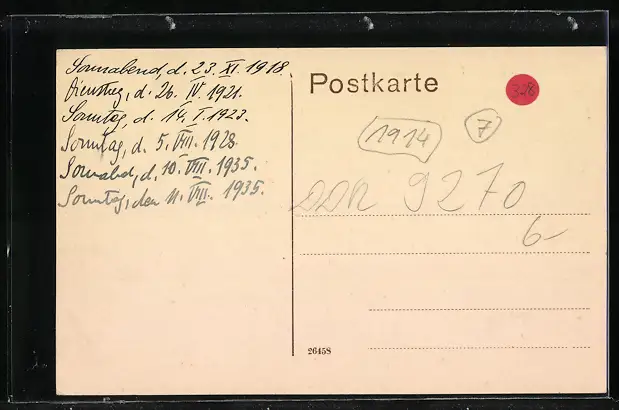 Sonnabend, d. 23. XI. 1918.
Dienstag, d. 26. IV 1921.
Sonntag, d. 14. I. 1923.
Sonntag, d. 5. VIII. 1928.
Sonnabd, d. 10. VIII. 1935.
Sonntag, den 11. VIII. 1935.
Postkarte
328
1914
7
DDR 9270
6-
26458